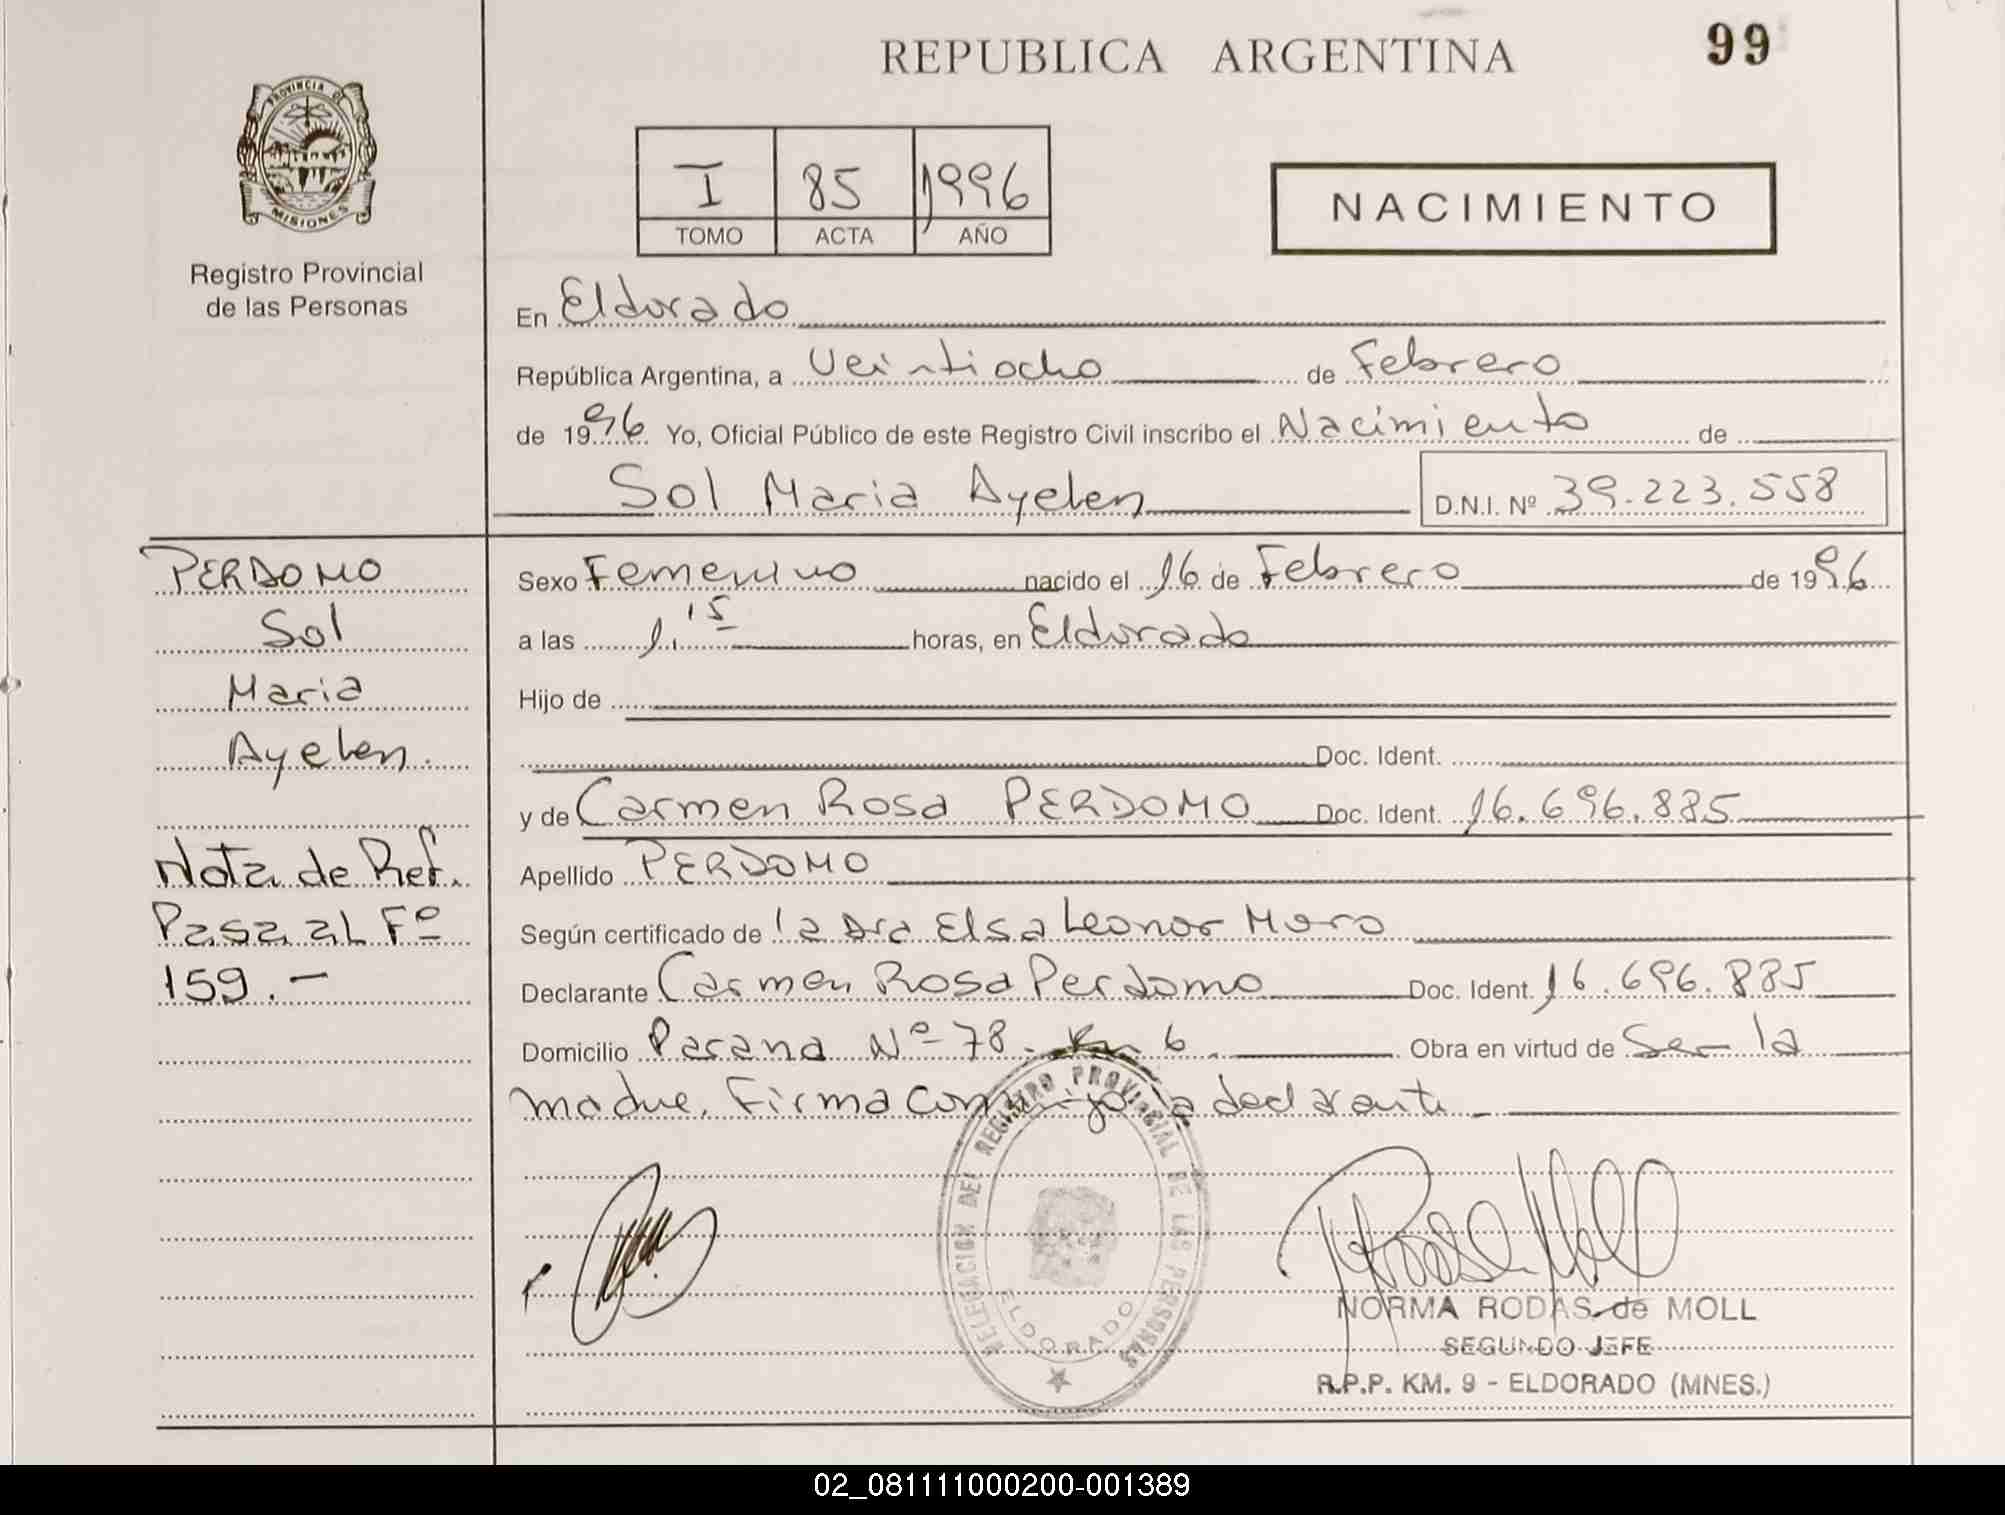 REPUBLICA ARGENTINA
99
PROVINCIA DE
MISIONES
Registro Provincial
de las Personas
I 85 1996
TOMO ACTA AÑO
NACIMIENTO
En Eldorado
República Argentina, a Veintiocho de Febrero
de 1996 Yo, Oficial Público de este Registro Civil inscribo el Nacimiento de
Sol Maria Ayelen D.N.I. Nº 39.223.558
PERDOMO
Sol
Maria
Ayelen.
Nota de Ref.
Pasa al Fº
159.-
Sexo Femenino nacido el 16 de Febrero de 1996
a las 1.15 horas, en Eldorado
Hijo de
Doc. Ident.
y de Carmen Rosa PERDOMO Doc. Ident. 16.696.885
Apellido PERDOMO
Según certificado de la Dra Elsa Leonor Moro
Declarante Carmen Rosa Perdomo Doc. Ident. 16.696.885
Domicilio Parana Nº 78. Km 6. Obra en virtud de Ser la
madre. Firma conmigo la declarante-
DELEGACION DEL REGISTRO PROVINCIAL DE LAS PERSONAS
ELDORADO
NORMA RODAS de MOLL
SEGUNDO JEFE
R.P.P. KM. 9 - ELDORADO (MNES.)
02_081111000200-001389